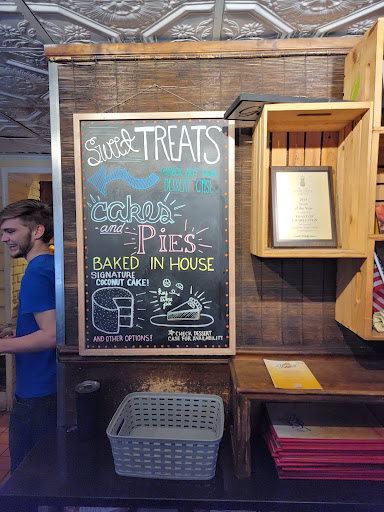 Sweet TREATS
CHECK OUT OUR
DESSERT CASE
Cakes
and PIES
BAKED IN HOUSE
SIGNATURE
COCONUT CAKE!
hey
like
pie
AND OTHER OPTIONS!
* CHECK DESSERT
CASE FOR AVAILABILITY